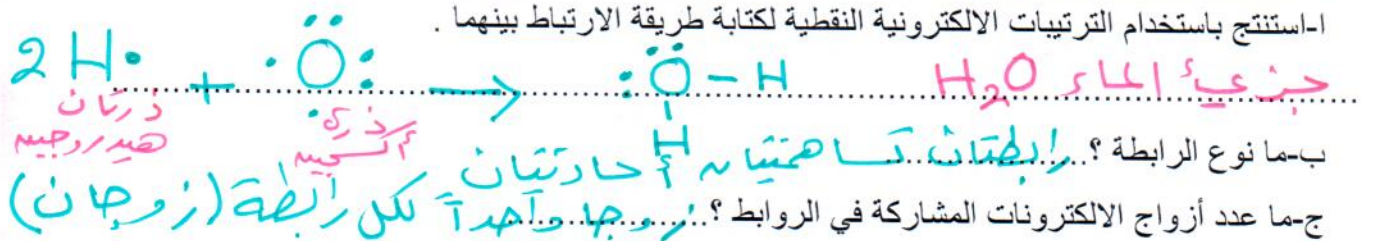 ا-استنتج باستخدام الترتيبات الالكترونية النقطية لكتابة طريقة الارتباط بينهما .
2 H• + •Ö: → :Ö – H
H
جزيئ الماء H₂O
ذرتان هيدروجين
ذرة أكسجين
ب-ما نوع الرابطة ؟ رابطتان تساهميتان أحاديتان
ج-ما عدد أزواج الالكترونات المشاركة في الروابط ؟ زوجا واحداً لكل رابطة (زوجان)